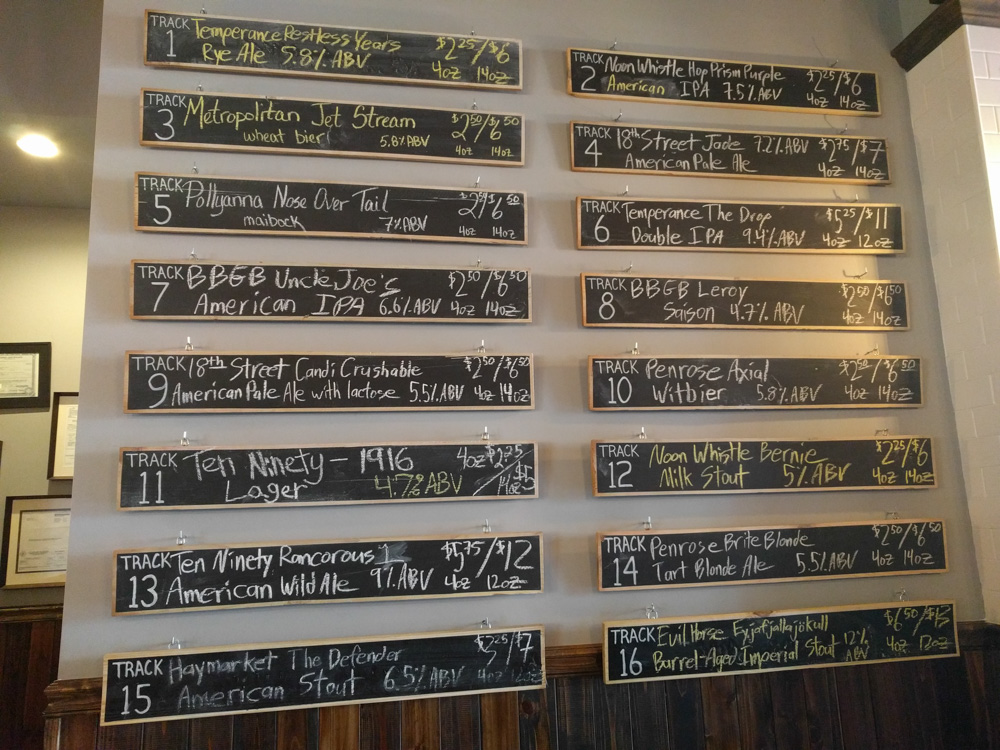 TRACK 1
Temperance Restless Years $2.25/$6
Rye Ale 5.8% ABV 4oz 14oz
TRACK 2
Noon Whistle Hop Prism Purple $2.25/$6
American IPA 7.5% ABV 4oz 14oz
TRACK 3
Metropolitan Jet Stream $2.50/$6.50
wheat bier 5.8% ABV 4oz 14oz
TRACK 4
18th Street Jade 7.2% ABV $2.75/$7
American Pale Ale 4oz 14oz
TRACK 5
Pollyanna Nose Over Tail $2.50/$6.50
maibock 7% ABV 4oz 14oz
TRACK 6
Temperance The Drop $5.25/$11
Double IPA 9.4% ABV 4oz 12oz
TRACK 7
BBGB Uncle Joe's $2.50/$6.50
American IPA 6.6% ABV 4oz 14oz
TRACK 8
BBGB Leroy $2.50/$6.50
Saison 4.7% ABV 4oz 14oz
TRACK 9
18th Street Candi Crushable $2.50/$6.50
American Pale Ale with lactose 5.5% ABV 4oz 14oz
TRACK 10
Penrose Axial $2.50/$6.50
Witbier 5.8% ABV 4oz 14oz
TRACK 11
Ten Ninety – 1916 4oz $2.25
Lager 4.7% ABV /14oz $5
TRACK 12
Noon Whistle Bernie $2.25/$6
Milk Stout 5% ABV 4oz 14oz
TRACK 13
Ten Ninety Rancorous $5.75/$12
American Wild Ale 9% ABV 4oz 12oz
TRACK 14
Penrose Brite Blonde $2.50/$6.50
Tart Blonde Ale 5.5% ABV 4oz 14oz
TRACK 15
Haymarket The Defender /$7
American Stout 6.5% ABV 4oz 14oz
TRACK 16
Evil Horse Eyjafjallajökull $6.50/$13
Barrel-Aged Imperial Stout 12% ABV 4oz 12oz